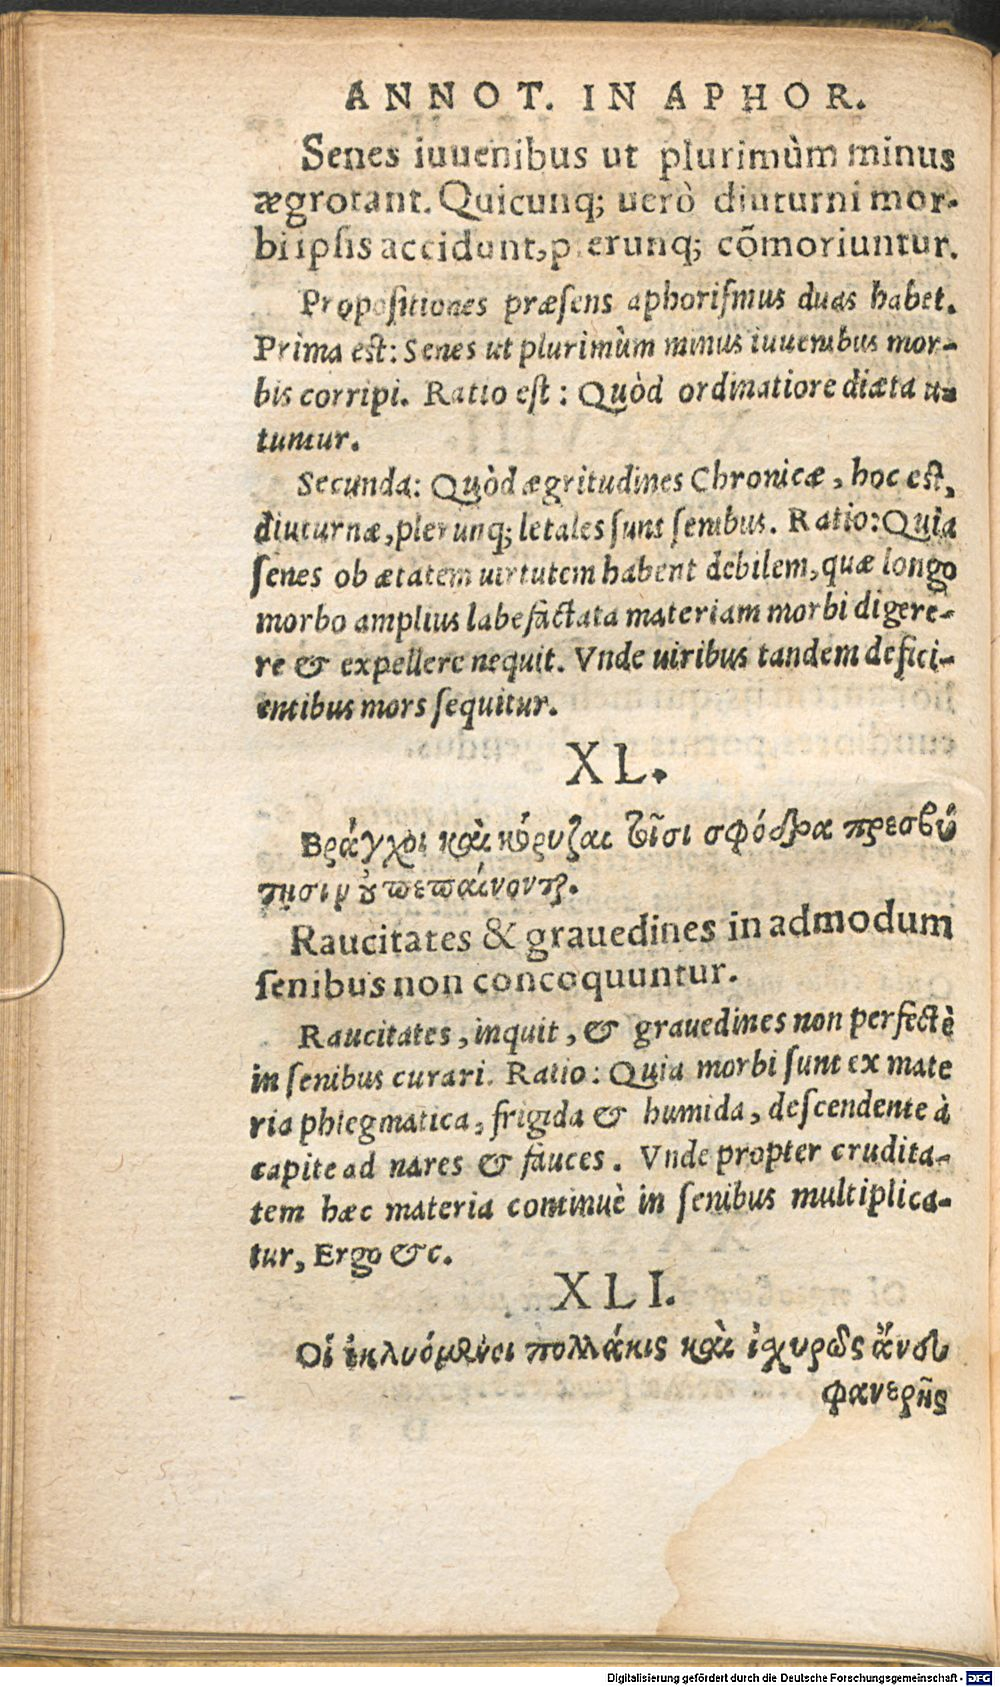 ANNOT. IN APHOR.
Senes iuuenibus ut plurimùm minus
ægrotant. Quicunq; uerò diuturni mor-
bi ipſis accidunt, plerunq; cõmoriuntur.
Propoſitiones præſens aphoriſmus duas habet.
Prima eſt: Senes ut plurimùm minus iuuenibus mor-
bis corripi. Ratio eſt: Quòd ordinatiore diæta u-
tuntur.
Secunda: Quòd ægritudines Chronicæ, hoc eſt,
diuturnæ, plerunq; letales ſunt ſenibus. Ratio: Quia
ſenes ob ætatem uirtutem habent debilem, quæ longo
morbo amplius labefactata materiam morbi digere-
re & expellere nequit. Vnde uiribus tandem defici-
entibus mors ſequitur.
XL.
Βράγχοι καὶ κόρυζαι τοῖσι σφόδρα πρεσβύ
τησιν ου πεπαίνονται.
Raucitates & grauedines in admodum
ſenibus non concoquuntur.
Raucitates, inquit, & grauedines non perfectè
in ſenibus curari. Ratio: Quia morbi ſunt ex mate
ria phlegmatica, frigida & humida, deſcendente à
capite ad nares & fauces. Vnde propter crudita-
tem hæc materia continuè in ſenibus multiplica-
tur, Ergo &c.
XLI.
Οἱ ἐκλυόμενοι πολλάκις καὶ ἰσχυρῶς ἄνευ
φανερῆς
Digitalisierung gefördert durch die Deutsche Forschungsgemeinschaft - DFG